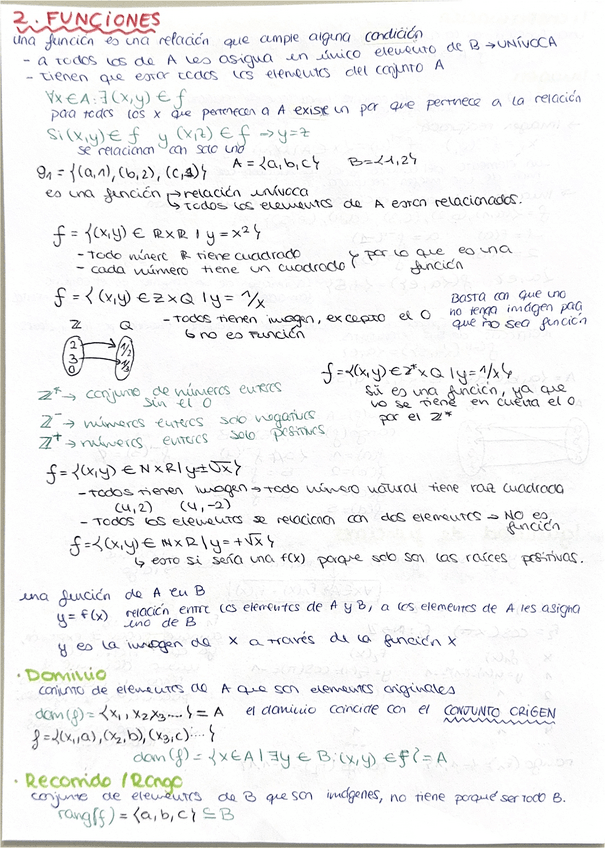 2. FUNCIONES
una función es una relación que cumple alguna condición
- a todos los de A les asigna un único elemento de B → UNÍVOCA
- tienen que estar todos los elementos del conjunto A
∀x ∈ A : ∃ (x,y) ∈ f
para todos los x que pertenecen a A existe un par que pertenece a la relación
Si (x,y) ∈ f y (x,z) ∈ f → y = z
se relacionan con solo uno
g₁ = {(a,1), (b,2), (c,1)} A = {a,b,c} B = {1,2}
es una función → relación unívoca
↳ todos los elementos de A están relacionados.
f = {(x,y) ∈ ℝxℝ | y = x²}
- todo número ℝ tiene cuadrado
- cada número tiene un cuadrado } por lo que es una función
f = {(x,y) ∈ ℤ x Q | y = 1/x}
- Todos tienen imagen, excepto el 0
↳ no es función
Basta con que uno
no tenga imagen para
que no sea función
ℤ Q
2 1/2
3 1/3
0
f = {(x,y) ∈ ℤ* x Q | y = 1/x}
Si es una función, ya que
no se tiene en cuenta el 0
por el ℤ*
ℤ* → conjunto de números enteros
sin el 0
ℤ⁻ → números enteros solo negativos
ℤ⁺ → números enteros solo positivos
f = {(x,y) ∈ N x R | y ± √x}
- todos tienen imagen → todo número natural tiene raíz cuadrada
(4,2) (4,-2)
- Todos los elementos se relacionan con dos elementos → NO es
función
f = {(x,y) ∈ N x R | y = +√x}
↳ esto si sería una f(x) porque solo son las raíces positivas.
una función de A en B
y = f(x) relación entre los elementos de A y B, a los elementos de A les asigna
uno de B
y es la imagen de x a través de la función x
· Dominio
conjunto de elementos de A que son elementos originales
dom(f) = {x₁, x₂ x₃ ....} = A el dominio coincide con el CONJUNTO ORIGEN
f = {(x₁,a), (x₂,b), (x₃,c) ....}
dom(f) = {x ∈ A | ∃y ∈ B : (x,y) ∈ f} = A
· Recorrido / Rango
conjunto de elementos de B que son imágenes, no tiene porqué ser todo B.
rang(f) = {a,b,c} ⊆ B